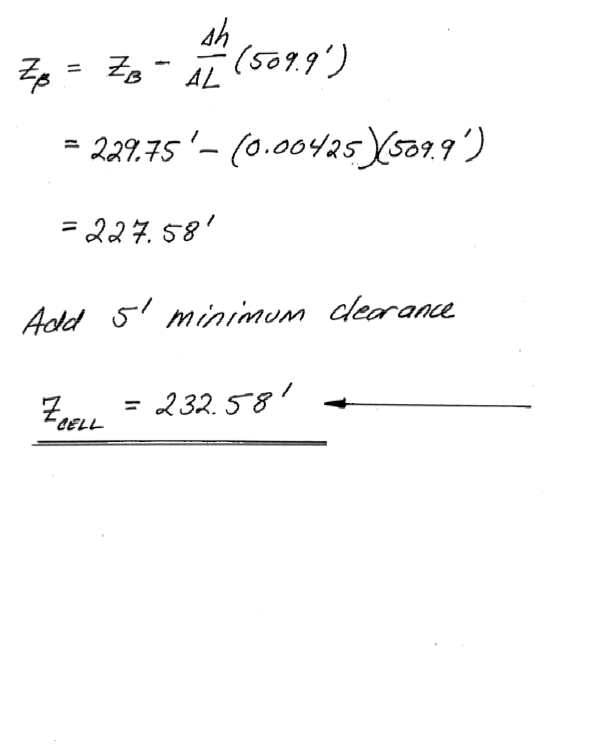 Zβ = ZB - Δh/ΔL (509.9')
= 229.75' - (0.00425)(509.9')
= 227.58'
Add 5' minimum clearance
ZCELL = 232.58'